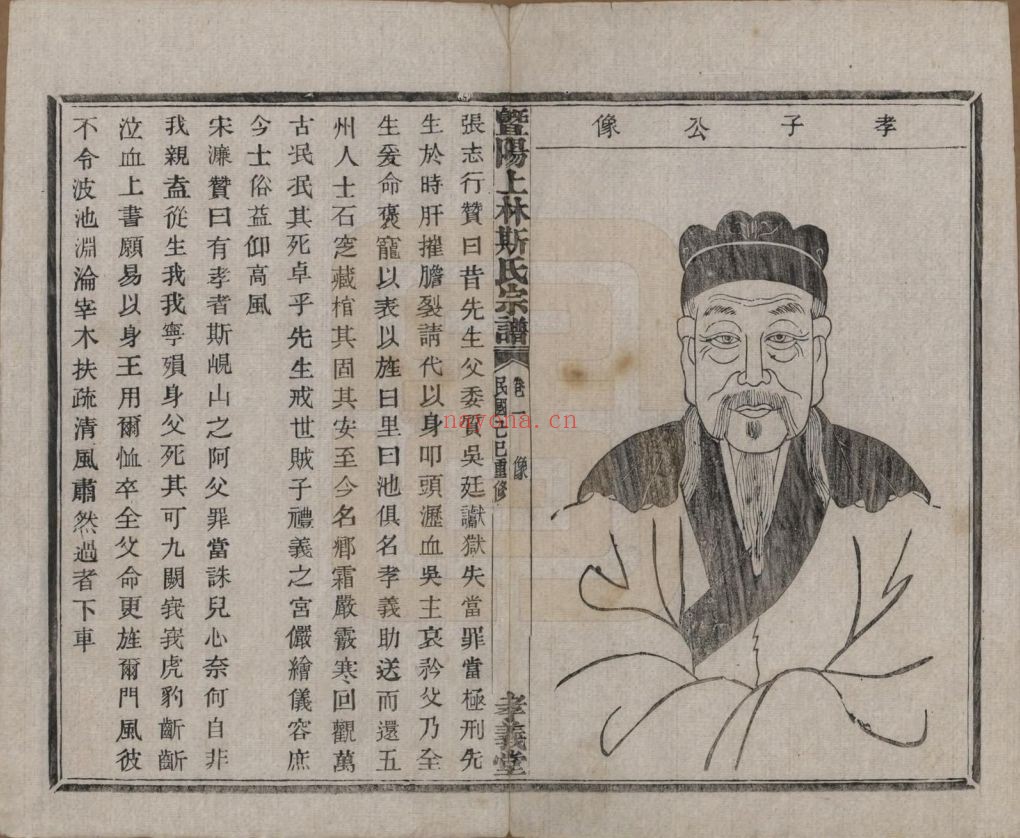 孝子公像
暨陽上林斯氏宗譜 卷一 像 民國己巳重修 孝義堂
張志行贊曰昔先生父委質吳廷讞獄失當罪當極刑先
生於時肝摧膽裂請代以身叩頭瀝血吳主哀矜父乃全
生爰命褒寵以表以旌曰里曰池俱名孝義助送而還五
州人士石窆藏棺其固其安至今名鄉霜嚴霰寒回觀萬
古泯泯其死卓乎先生戒世賊子禮義之宮儼繪儀容庶
今士俗益仰高風
宋濂贊曰有孝者斯峴山之阿父罪當誅兒心奈何自非
我親盍從生我我寧殞身父死其可九關峩峩虎豹齗齗
泣血上書願易以身王用爾恤卒全父命更旌爾門風彼
不令波池淵淪宰木扶疏清風肅然過者下車
nayona.cn